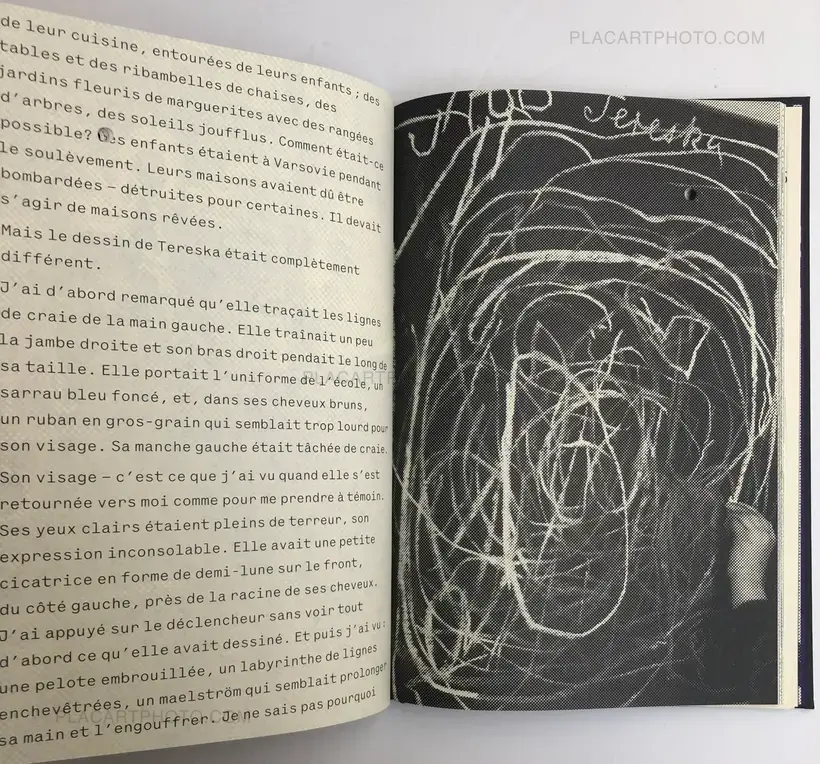 PLACARTPHOTO.COM
de leur cuisine, entourées de leurs enfants ; des
tables et des ribambelles de chaises, des
jardins fleuris de marguerites avec des rangées
d'arbres, des soleils joufflus. Comment était-ce
possible? Ces enfants étaient à Varsovie pendant
le soulèvement. Leurs maisons avaient dû être
bombardées – détruites pour certaines. Il devait
s'agir de maisons rêvées.
Mais le dessin de Tereska était complètement
différent.
J'ai d'abord remarqué qu'elle traçait les lignes
de craie de la main gauche. Elle traînait un peu
la jambe droite et son bras droit pendait le long de
sa taille. Elle portait l'uniforme de l'école, un
sarrau bleu foncé, et, dans ses cheveux bruns,
un ruban en gros-grain qui semblait trop lourd pour
son visage. Sa manche gauche était tâchée de craie.
Son visage – c'est ce que j'ai vu quand elle s'est
retournée vers moi comme pour me prendre à témoin.
Ses yeux clairs étaient pleins de terreur, son
expression inconsolable. Elle avait une petite
cicatrice en forme de demi-lune sur le front,
du côté gauche, près de la racine de ses cheveux.
J'ai appuyé sur le déclencheur sans voir tout
d'abord ce qu'elle avait dessiné. Et puis j'ai vu :
une pelote embrouillée, un labyrinthe de lignes
enchevêtrées, un maelström qui semblait prolonger
sa main et l'engouffrer. Je ne sais pas pourquoi
PLACARTPHOTO.COM
Tereska